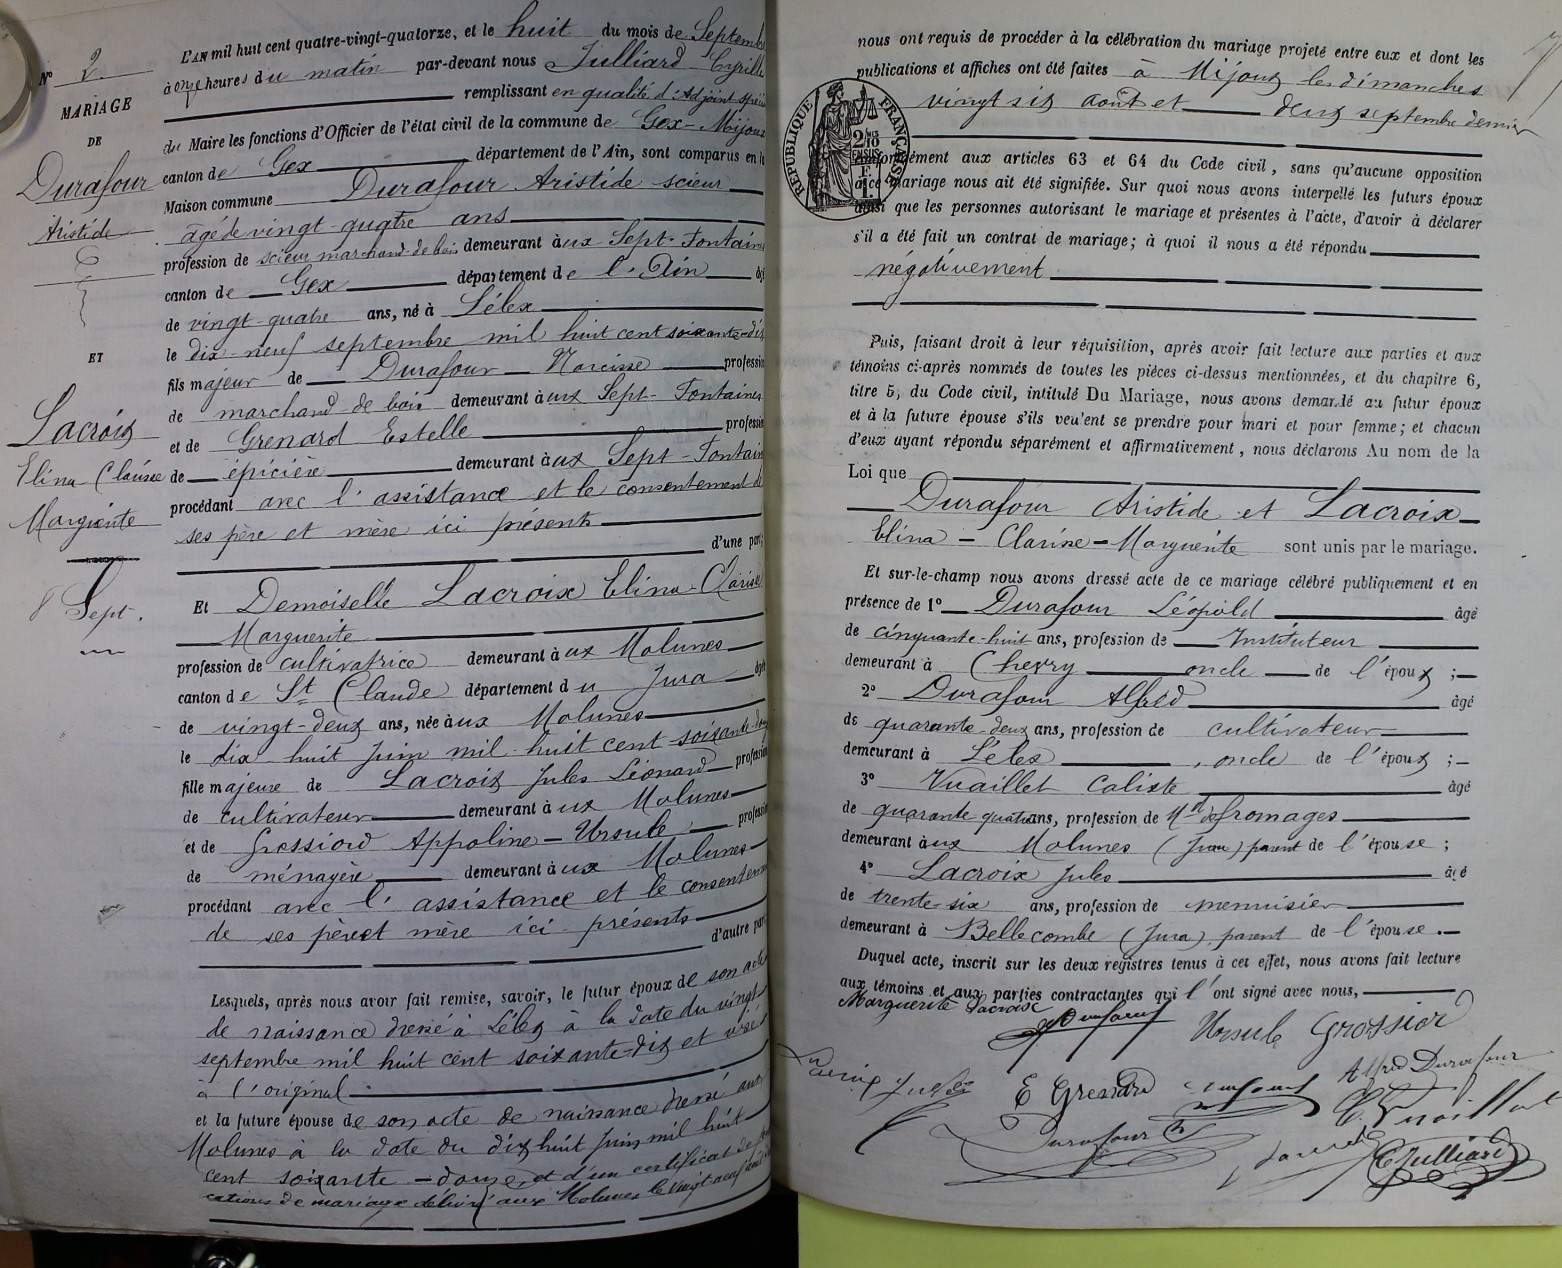 N° 2
MARIAGE
DE
Durafour
Aristide
ET
Lacroix
Elina Clarisse
Marguerite
8 Sept.
L'AN mil huit cent quatre-vingt-quatorze, et le huit du mois de Septembre
à onze heures du matin par-devant nous Julliard Cyrille
remplissant en qualité d'Adjoint spécial
du Maire les fonctions d'Officier de l'état civil de la commune de Gex-Mijoux
canton de Gex département de l'Ain, sont comparus en la
Maison commune Durafour Aristide scieur
agé de vingt-quatre ans
profession de scieur marchand de bois demeurant aux Sept-Fontaines
canton de Gex département de l'Ain âgé
de vingt-quatre ans, né à Lélex
le dix-neuf septembre mil huit cent soixante-dix
fils majeur de Durafour Narcisse profession
de marchand de bois demeurant aux Sept-Fontaines
et de Grenard Estelle profession
de épicière demeurant aux Sept-Fontaines
procédant avec l'assistance et le consentement de
ses père et mère ici présents
d'une part;
Et Demoiselle Lacroix Elina-Clarisse
Marguerite
profession de cultivatrice demeurant aux Molunes
canton de St Claude département du Jura âgée
de vingt-deux ans, née aux Molunes
le dix huit juin mil huit cent soixante-douze
fille majeure de Lacroix Jules Léonard profession
de cultivateur demeurant aux Molunes
et de Grossiord Appoline-Ursule profession
de ménagère demeurant aux Molunes
procédant avec l'assistance et le consentement
de ses père et mère ici présents
d'autre part
Lesquels, après nous avoir fait remise, savoir, le futur époux de son acte
de naissance dressé à Lélex à la date du vingt
septembre mil huit cent soixante-dix et visé
à l'original
et la future épouse de son acte de naissance dressé aux
Molunes à la date du dix huit juin mil huit
cent soixante-douze, et d'un certificat de publi
cations de mariage délivré aux Molunes le vingt neuf août
nous ont requis de procéder à la célébration du mariage projeté entre eux et dont les
publications et affiches ont été faites à Mijoux les dimanches
vingt six août et deux septembre dernier
RÉPUBLIQUE FRANÇAISE
2/10 EN SUS
conformément aux articles 63 et 64 du Code civil, sans qu'aucune opposition
à ce mariage nous ait été signifiée. Sur quoi nous avons interpellé les futurs époux
ainsi que les personnes autorisant le mariage et présentes à l'acte, d'avoir à déclarer
s'il a été fait un contrat de mariage; à quoi il nous a été répondu
négativement
Puis, faisant droit à leur réquisition, après avoir fait lecture aux parties et aux
témoins ci-après nommés de toutes les pièces ci-dessus mentionnées, et du chapitre 6,
titre 5, du Code civil, intitulé Du Mariage, nous avons demandé au futur époux
et à la future épouse s'ils veulent se prendre pour mari et pour femme; et chacun
d'eux ayant répondu séparément et affirmativement, nous déclarons Au nom de la
Loi que
Durafour Aristide et Lacroix
Elina-Clarisse-Marguerite sont unis par le mariage.
Et sur-le-champ nous avons dressé acte de ce mariage célébré publiquement et en
présence de 1° Durafour Léopold âgé
de cinquante-huit ans, profession de Instituteur
demeurant à Chevry oncle de l'époux ;
2° Durafour Alfred âgé
de quarante-deux ans, profession de cultivateur
demeurant à Lélex, oncle de l'époux ;
3° Vuaillet Caliste âgé
de quarante quatre ans, profession de Md de fromages
demeurant aux Molunes (Jura) parent de l'épouse ;
4° Lacroix Jules âgé
de trente-six ans, profession de menuisier
demeurant à Bellecombe (Jura) parent de l'épouse.
Duquel acte, inscrit sur les deux registres tenus à cet effet, nous avons fait lecture
aux témoins et aux parties contractantes qui l'ont signé avec nous,
Marguerite Lacroix
Ursule Grossiord
Alfred Durafour
Lacroix Jules
E Grenard
C. Vuaillet
Durafour
C Julliard